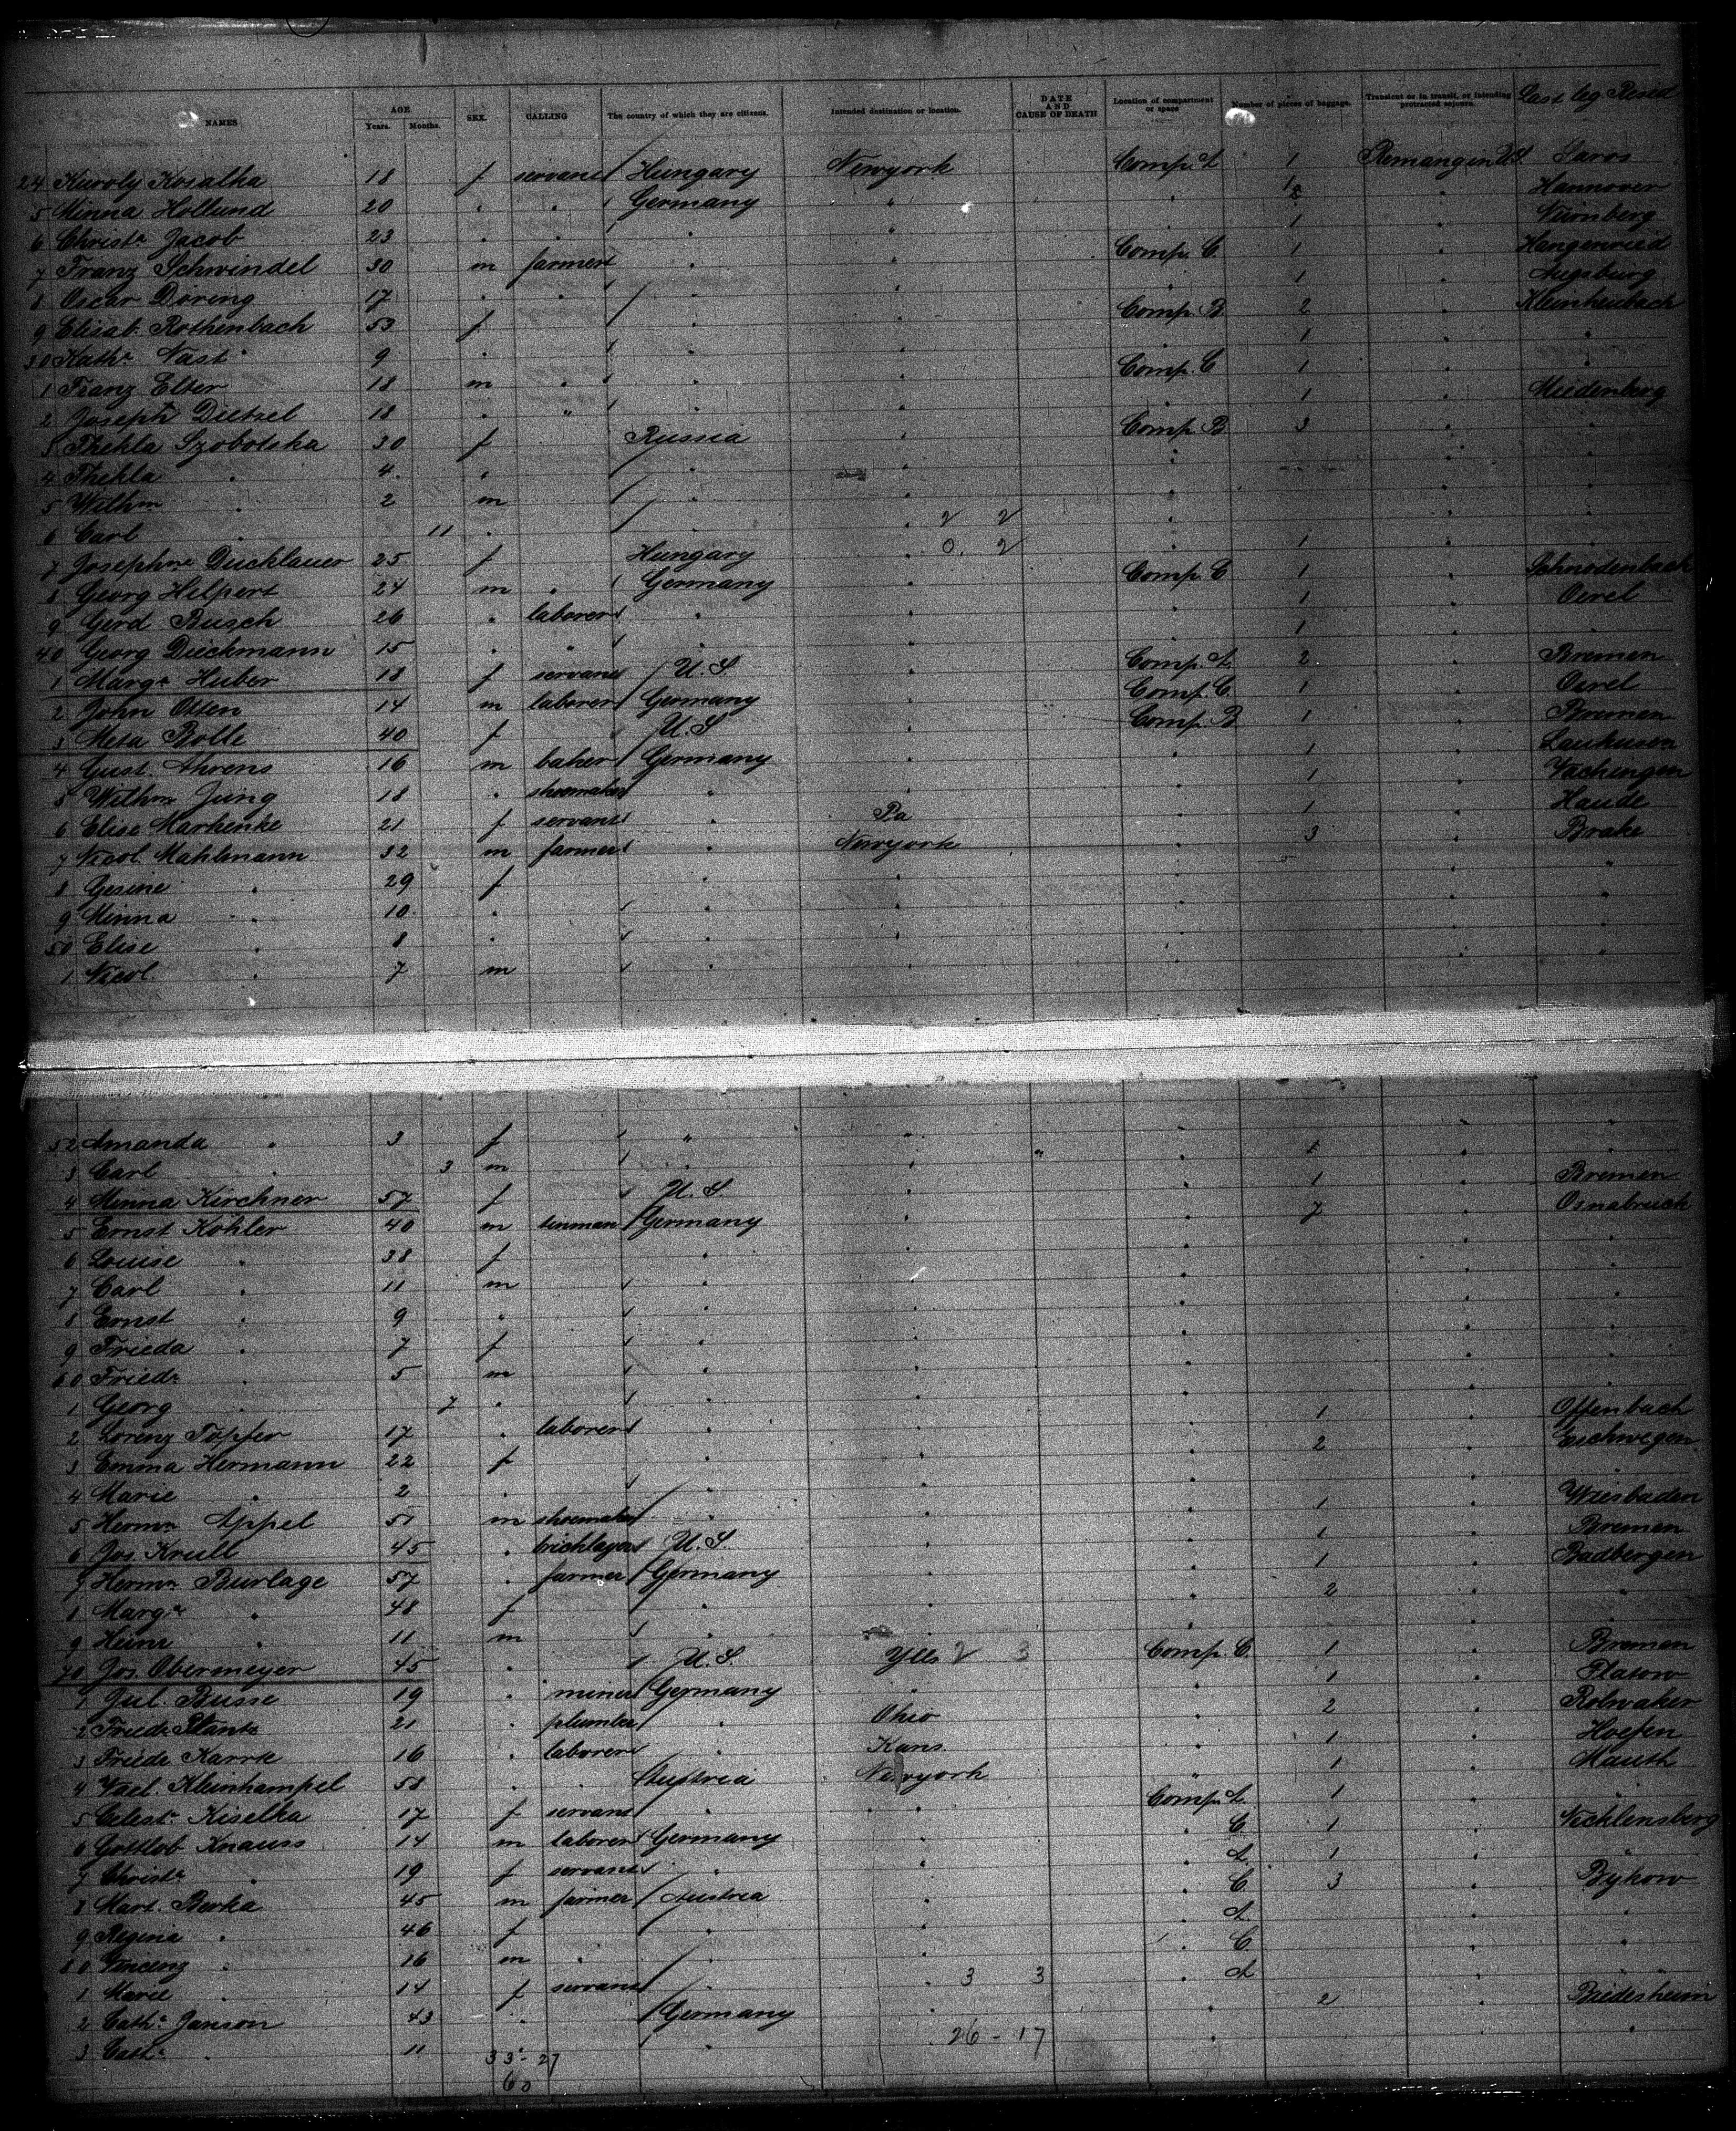 NAMES AGE Years. Months. SEX. CALLING The country of which they are citizens. Intended destination or location. DATE AND CAUSE OF DEATH Location of compartment or space Number of pieces of baggage. Transient or in transit, or intending protracted sojourn. Last leg. Resid
24 Karoly Kosalka 18 f servant Hungary Newyork Comp. A 1 Saros
5 Minna Hollund 20 " " Germany " " " Hannover
6 Christe Jacob 23 " " " " " 1 " Nürnberg
7 Franz Schwindel 30 m farmer " " Comp. C 1 "
8 Oscar Döring 17 " " " " " 1 " Augsburg
9 Elisab. Rothenbach 53 f " " Comp. B 2 " Kleinheubach
30 Kathe Nast 9 " " " " 1 " "
1 Franz Elter 18 m " " " Comp. C 1 " "
2 Joseph Dietzel 18 " " " " " 1 " Miedenberg
3 Thekla Szobotska 30 f Russia " Comp. B 3 " "
4 Thekla " 4 " " " " " "
5 Wilhm " 2 m " " " " "
6 Carl " 11 " " " 2 2 " " "
7 Josephne Ducklauer 25 f Hungary " 0. 2 " 1 " "
8 Georg Helpert 24 m " Germany " Comp. C 1 " Schnodenbach
9 Gerd Busch 26 " laborer " " " 1 " Oerel
40 Georg Dieckmann 15 " " " " " 1 " "
1 Marge Huber 18 f servant U.S. " Comp. A 2 " Bremen
2 John Otten 14 m laborer Germany " Comp. C 1 " Oerel
3 Meta Bolle 40 f U.S " Comp. B 1 " Bremen
4 Gust. Ahrens 16 m baker Germany " " 1 " Laukusen
5 Wilhm Jung 18 " shoemaker " " " 1 " Vachingen
6 Elise Markenke 21 f servant " Pa " 1 " Haude
7 Nicol. Mahlmann 32 m farmer " Newyork " 3 " Brake
8 Gesine " 29 f " " " " "
9 Minna " 10 " " " " " "
50 Elise " 8 " " " " " "
1 Nicol. " 7 m " " " " "
52 Amanda " 3 f " " " " "
3 Carl " 3 m " " " 1 " "
4 Minna Kirchner 57 f U.S " " 1 " Bremen
5 Ernst Köhler 40 m tinman Germany " " 7 " Osnabruck
6 Louise " 38 f " " " " "
7 Carl " 11 m " " " " "
8 Ernst " 9 " " " " " "
9 Frieda " 7 f " " " " "
60 Friedr " 5 m " " " " "
1 Georg " 7 " " " " " "
2 Lorenz Töpfer 17 " laborer " " " 1 " Offenbach
3 Emma Hermann 22 f " " " 2 " Eschwegen
4 Marie " 2 " " " " " "
5 Hermn Appel 51 m shoemaker " " " 1 " Wiesbaden
6 Jos. Krull 45 " bricklayer U.S. " " 1 " Bremen
7 Hermn Burlage 57 " farmer Germany " " 1 " Badbergen
8 Marge " 48 f " " " 2 " "
9 Heinr " 11 m " " " " "
70 Jos. Obermeyer 45 " U.S. Ills 2 3 Comp. C. 1 " Bremen
1 Jul. Busse 19 " miner Germany " " 1 " Flatow
2 Friedr Plantz 21 " plumber " Ohio " 2 " Rolwaker
3 Friedr Karrk 16 " laborer " Kans. " 1 " Hoefen
4 Kleinhampel 58 " " Austria Newyork " 1 " Mauth
5 Celeste Kiselka 17 f servant " " Comp. A. 1 " "
6 Gottlob Knauss 14 m laborer Germany " " C. 1 " Necklensberg
7 Christe " 19 f servant " " " A. 1 " "
8 Mart. Berka 45 m farmer Austria " " C. 3 " Bykow
9 Regina " 46 f " " " A. " "
80 Vincenz " 16 m " " " " C. " "
1 Marie " 14 f servant " " 3 3 " A " "
2 Cathe Janson 43 " " Germany " " 2 " Biedesheim
3 Cathe " 11 " 26 - 17 " " "
33 - 27
60